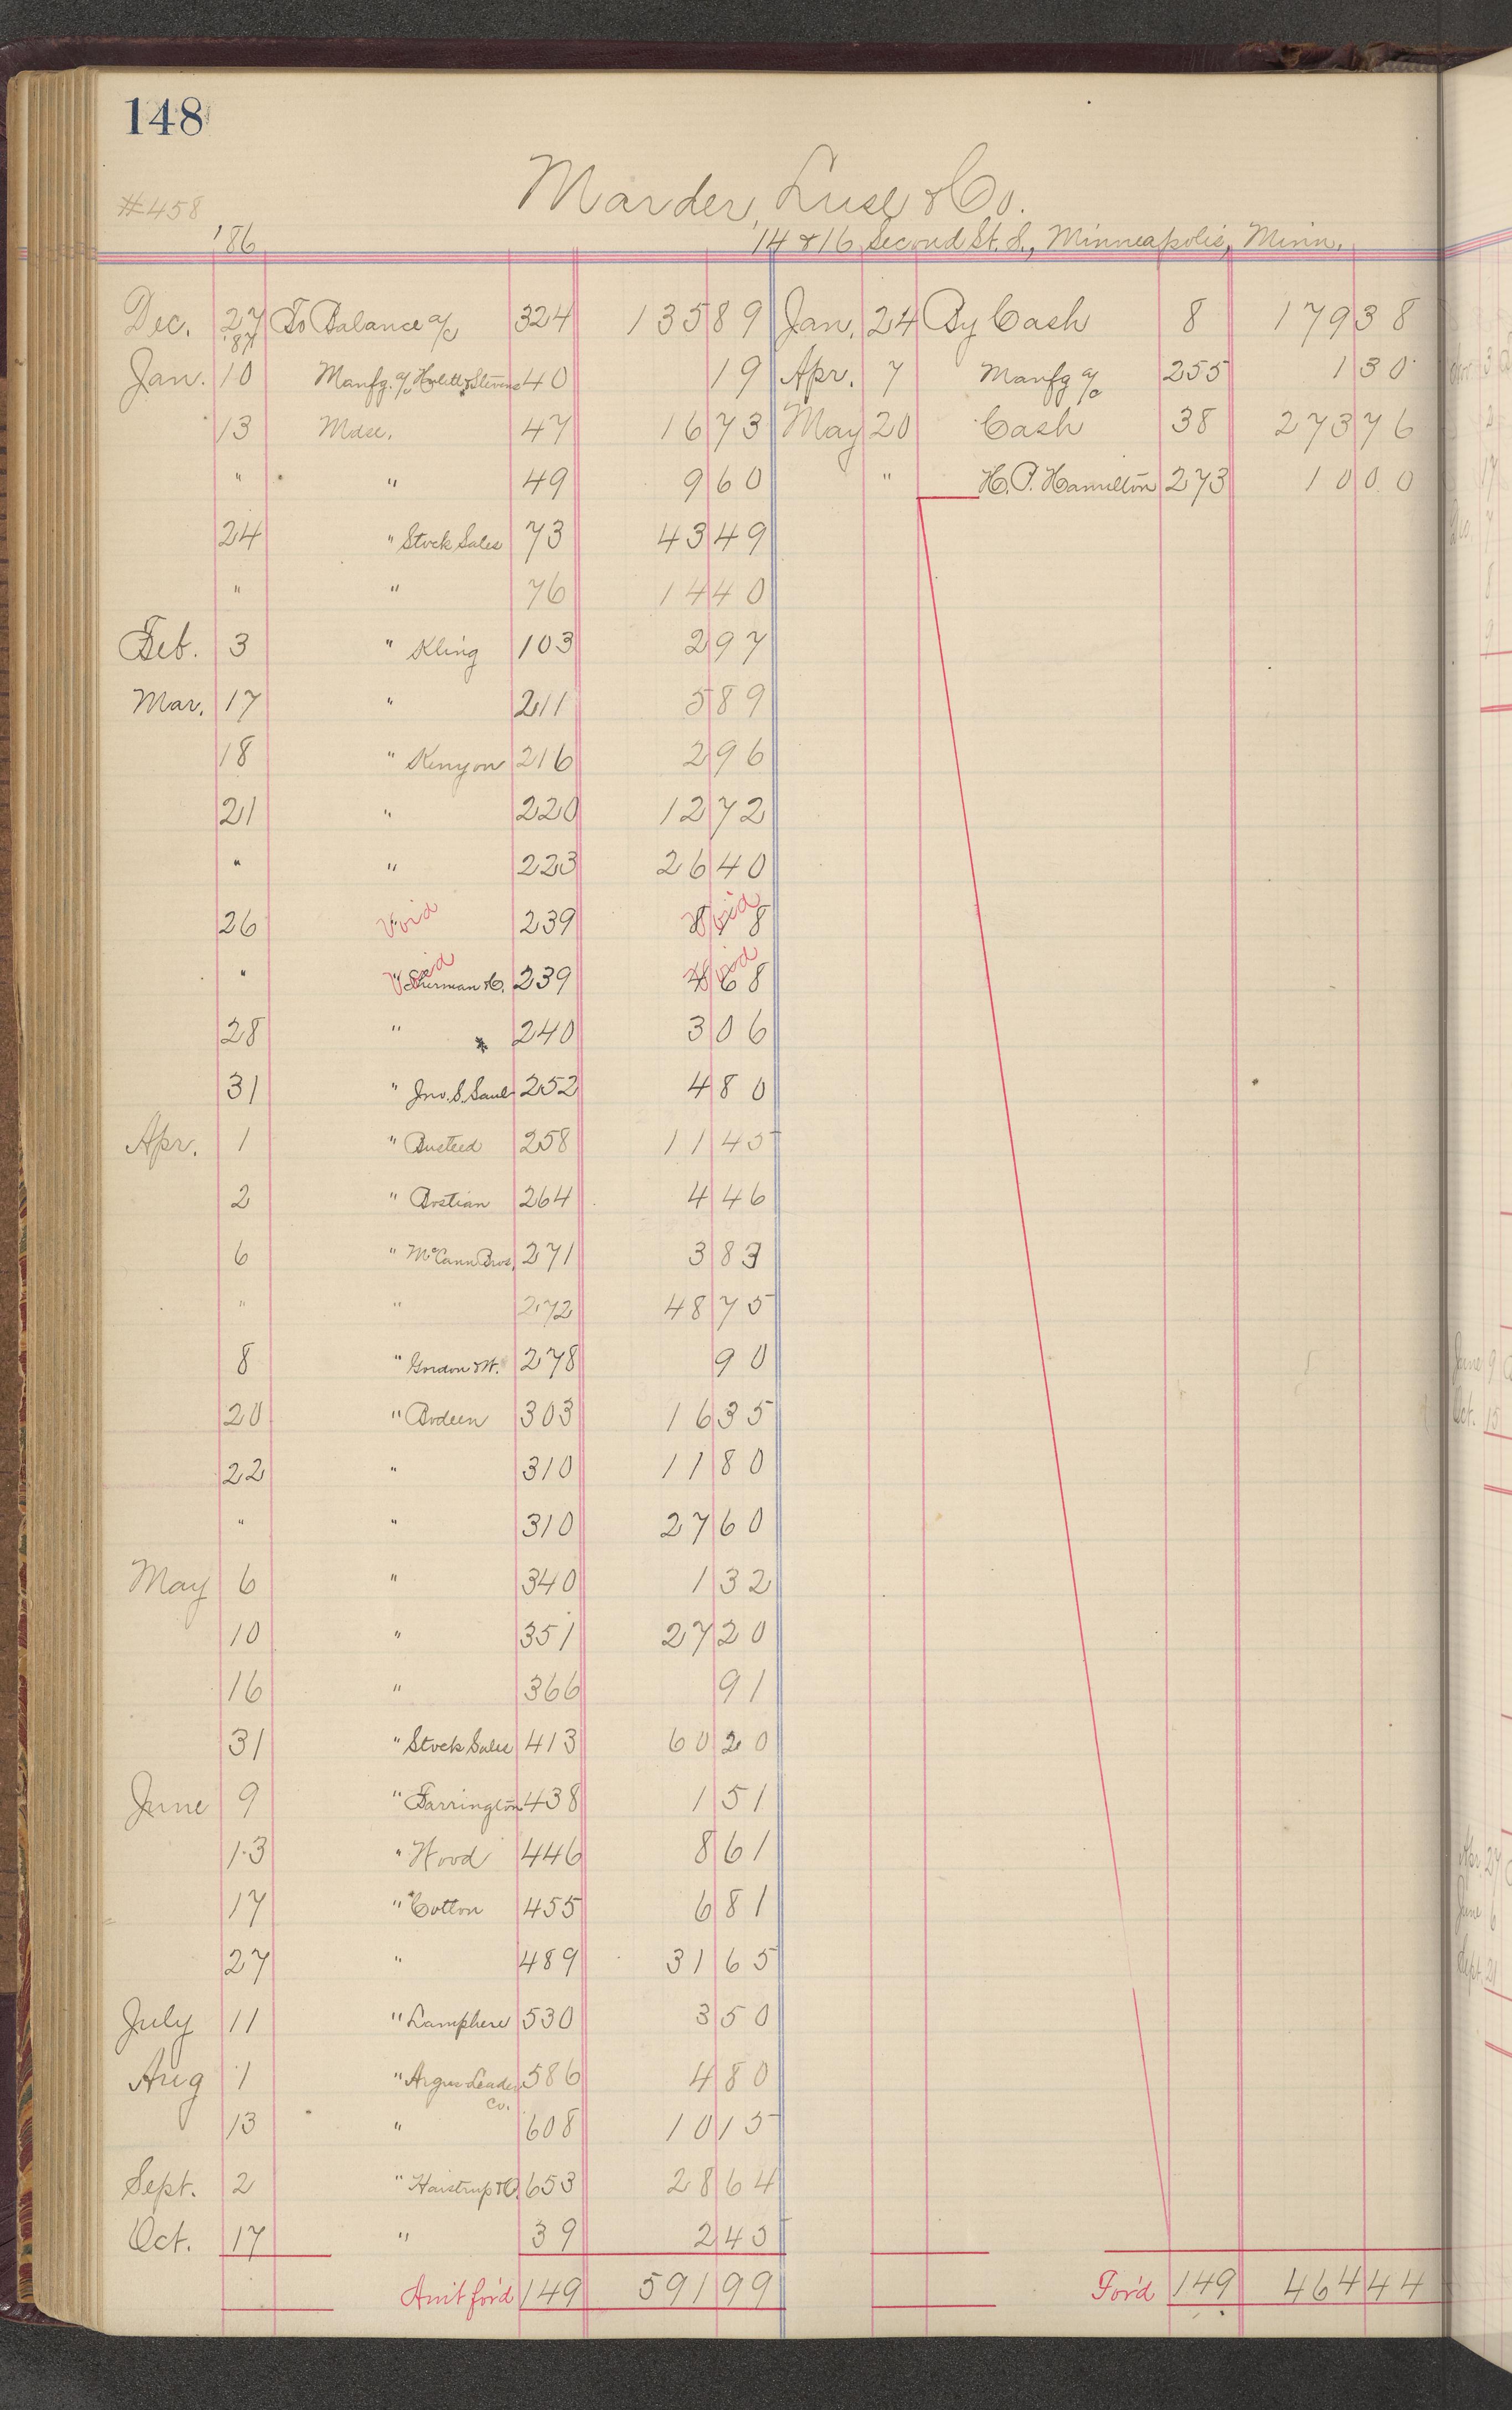 148
Marder, Luse & Co.
#458
'86 14 & 16 Second St. S., Minneapolis, Minn.
Dec. 27 To Balance a/c 324 135 89 Jan. 24 By Cash 8 179 38
'87
Jan. 10 Manfg. a/c & Stevens 40 19 Apr. 7 Manfg a/c 255 1 30
13 Mdse. 47 16 73 May 20 Cash 38 273 76
" " 49 9 60 " H. P. Hamilton 273 10 00
24 " Stock Sales 73 43 49
" " 76 14 40
Feb. 3 " Kling 103 2 97
Mar. 17 " 211 5 89
18 " Kenyon 216 2 96
21 " 220 12 72
" " 223 26 40
26 Void 239 Void 8
" " Sherman & Co. Void 239 4 68 Void
28 " 240 3 06
31 " Jno. S. Saul 252 4 80
Apr. 1 " Busteed 258 11 45
2 " Bostian 264 4 46
6 " McCann Bros. 271 3 83
" " 272 48 75
8 " Gordon & W. 278 90
20 " Bodeen 303 16 35
22 " 310 11 80
" " 310 27 60
May 6 " 340 1 32
10 " 351 27 20
16 " 366 91
31 " Stock Sales 413 60 20
June 9 " Farrington 438 1 51
13 " Wood 446 8 61
17 " Cotton 455 6 81
27 " 489 31 65
July 11 " Lamphere 530 3 50
Aug 1 " Argus Leader Co. 586 4 80
13 " 608 10 15
Sept. 2 " Haistrup & Co. 653 28 64
Oct. 17 " 39 2 45
Am't for'd 149 591 99 For'd 149 464 44